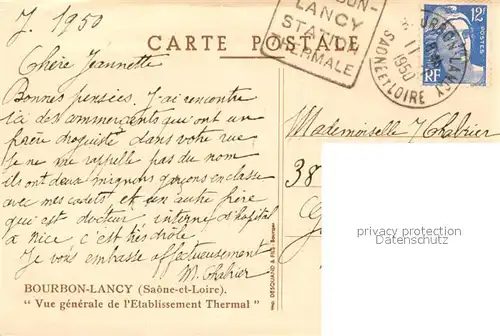 J. 1950
BOURBON-
LANCY
STATION
THERMALE
12F
POSTES
RF
BOURBON-LANCY
11
1950
SAÔNE ET LOIRE
CARTE POSTALE
Chère Jeannette
Bonnes pensées. J'ai rencontré
ici des commerçants qui ont un
frère droguiste dans votre rue
Je ne me rappelle pas du nom
ils ont deux mignons garçons en classe
avec mes cadets, et un autre frère
qui est docteur, interne d'hôpital
à Nice c'est très drôle
Je vous embrasse affectueusement
M. Chabrier
Mademoiselle J Chabrier
38
BOURBON-LANCY (Saône-et-Loire).
" Vue générale de l'Etablissement Thermal "
IMP. DESQUAND & FILS - Bourges
Datenschutz
protection des données